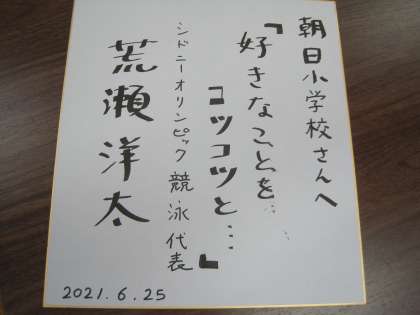 朝日小学校さんへ
「好きなことを…
コツコツと…」
シドニーオリンピック 競泳代表
荒瀬洋太
2021.6.25